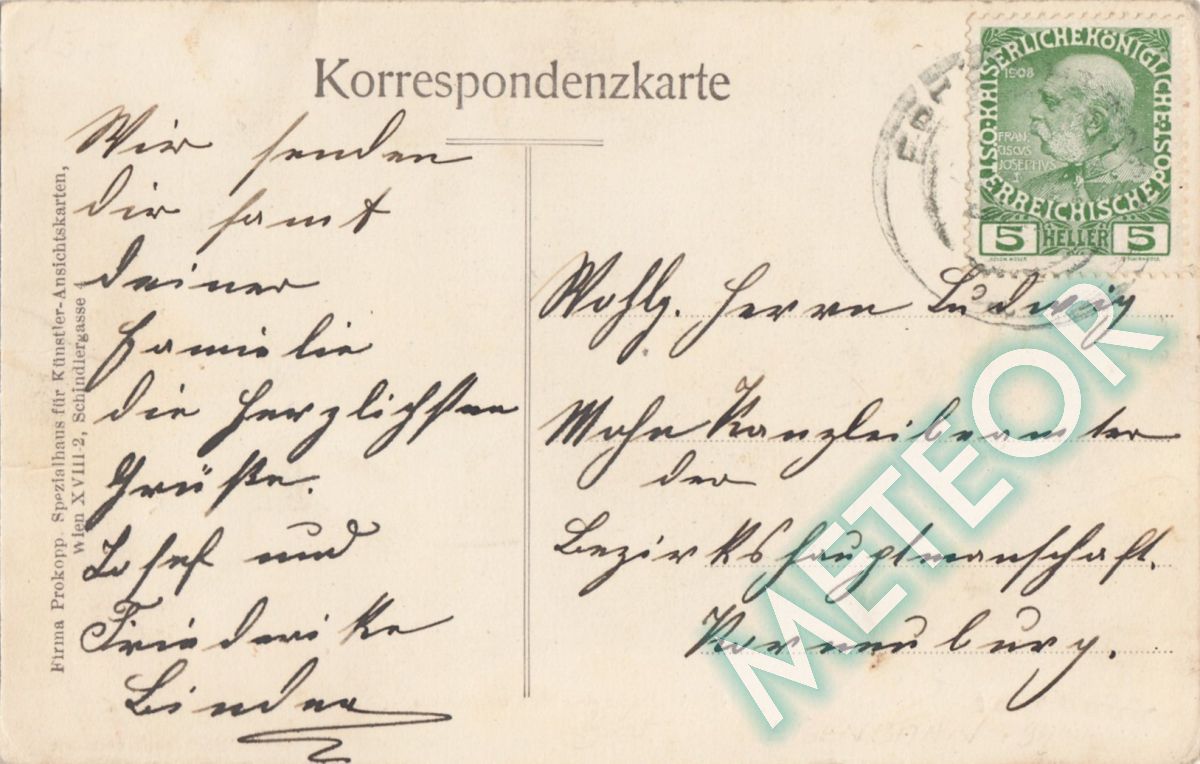 Korrespondenzkarte
Wir senden
dir samt
deiner
Familie
die herzlichsten
Grüße.
Josef und
Friederike
Binder
Firma Prokopp. Spezialhaus für Künstler-Ansichtskarten,
Wien XVIII-2, Schindlergasse
ÖSTERREICHISCHE POST KAISERLICHE KÖNIGLICHE
1908
FRAN
CISCVS
JOSEPHVS
I
5 HELLER 5
Wohlg. Herrn Ludwig
Mohn Kanzleibeamter
der
Bezirkshauptmanschaft.
Korneuburg.
METEOR